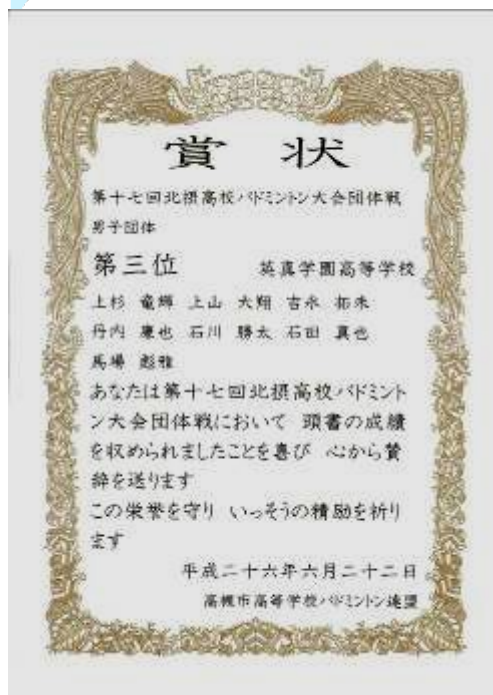 賞状
第十七回北摂高校バドミントン大会団体戦
男子団体
第三位 英真学園高等学校
上杉 竜輝 上山 大翔 吉永 拓未
丹内 康也 石川 勝太 石田 真也
馬場 彪雅
あなたは第十七回北摂高校バドミント
ン大会団体戦において 頭書の成績
を収められましたことを喜び 心から賛
辞を送ります
この栄誉を守り いっそうの精励を祈り
ます
平成二十六年六月二十二日
高槻市高等学校バドミントン連盟